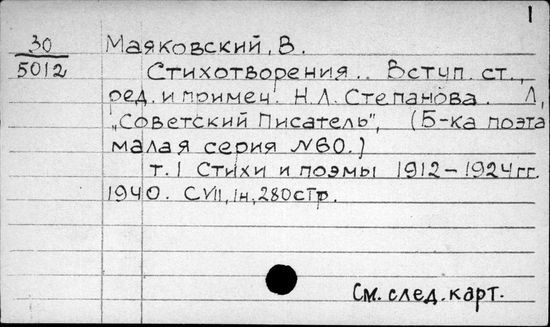 1
30 Маяковский, В.
5012 Стихотворения.. Вступ. ст.,
ред. и примеч. Н.Л. Степанова. Л,
„Советский Писатель", (Б-ка поэта
малая серия №60.)
т. 1 Стихи и поэмы 1912-1924гг.
1940. CVII, 1н, 280стр.
См. след. карт.